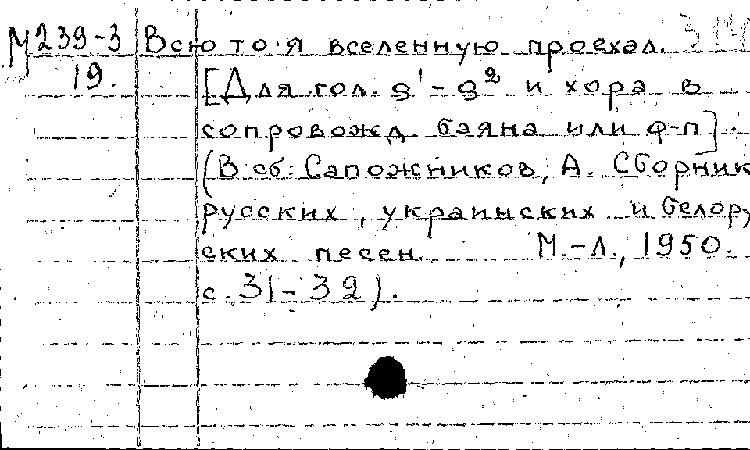 М 239-3 Всю то я вселенную проехал. 314
19. [Для гол. g¹-g² и хора в
сопровожд. баяна или ф-п].
(В сб: Сапожников, А. Сборник
русских, украинских и белору
ских песен. М.-Л., 1950.
с. 31-32).